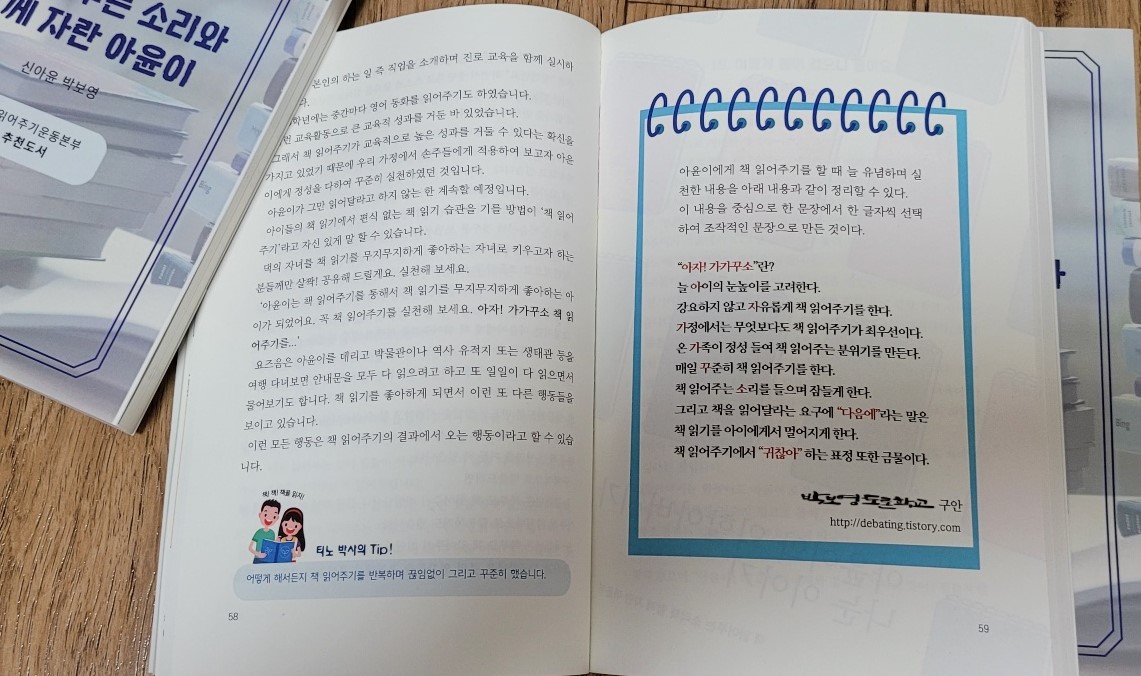 는 소리와
께 자란 아윤이
신아윤 박보영
읽어주기운동본부
추천도서
본인의 하는 일 즉 직업을 소개하며 진로 교육을 함께 실시하
다.
학년에는 중간마다 영어 동화를 읽어주기도 하였습니다.
런 교육활동으로 큰 교육적 성과를 거둔 바 있었습니다.
그래서 책 읽어주기가 교육적으로 높은 성과를 거둘 수 있다는 확신을
가지고 있었기 때문에 우리 가정에서 손주들에게 적용하여 보고자 아윤
이에게 정성을 다하여 꾸준히 실천하였던 것입니다.
아윤이가 그만 읽어달라고 하지 않는 한 계속할 예정입니다.
아이들의 책 읽기에서 편식 없는 책 읽기 습관을 기를 방법이 ‘책 읽어
주기’라고 자신 있게 말 할 수 있습니다.
댁의 자녀를 책 읽기를 무지무지하게 좋아하는 자녀로 키우고자 하는
분들께만 살짝! 공유해 드릴게요. 실천해 보세요.
‘아윤이는 책 읽어주기를 통해서 책 읽기를 무지무지하게 좋아하는 아
이가 되었어요. 꼭 책 읽어주기를 실천해 보세요. 아자! 가가꾸소 책 읽
어주기를...’
요즈음은 아윤이를 데리고 박물관이나 역사 유적지 또는 생태관 등을
여행 다녀보면 안내문을 모두 다 읽으려고 하고 또 일일이 다 읽으면서
물어보기도 합니다. 책 읽기를 좋아하게 되면서 이런 또 다른 행동들을
보이고 있습니다.
이런 모든 행동은 책 읽어주기의 결과에서 오는 행동이라고 할 수 있습
니다.
책! 책! 책을 읽자!
티노 박사의 Tip!
어떻게 해서든지 책 읽어주기를 반복하며 끊임없이 그리고 꾸준히 했습니다.
58
아윤이에게 책 읽어주기를 할 때 늘 유념하며 실
천한 내용을 아래 내용과 같이 정리할 수 있다.
이 내용을 중심으로 한 문장에서 한 글자씩 선택
하여 조작적인 문장으로 만든 것이다.
“아자! 가가꾸소”란?
늘 아이의 눈높이를 고려한다.
강요하지 않고 자유롭게 책 읽어주기를 한다.
가정에서는 무엇보다도 책 읽어주기가 최우선이다.
온 가족이 정성 들여 책 읽어주는 분위기를 만든다.
매일 꾸준히 책 읽어주기를 한다.
책 읽어주는 소리를 들으며 잠들게 한다.
그리고 책을 읽어달라는 요구에 “다음에”라는 말은
책 읽기를 아이에게서 멀어지게 한다.
책 읽어주기에서 “귀찮아” 하는 표정 또한 금물이다.
박보영토론학교 구안
http://debating.tistory.com
59